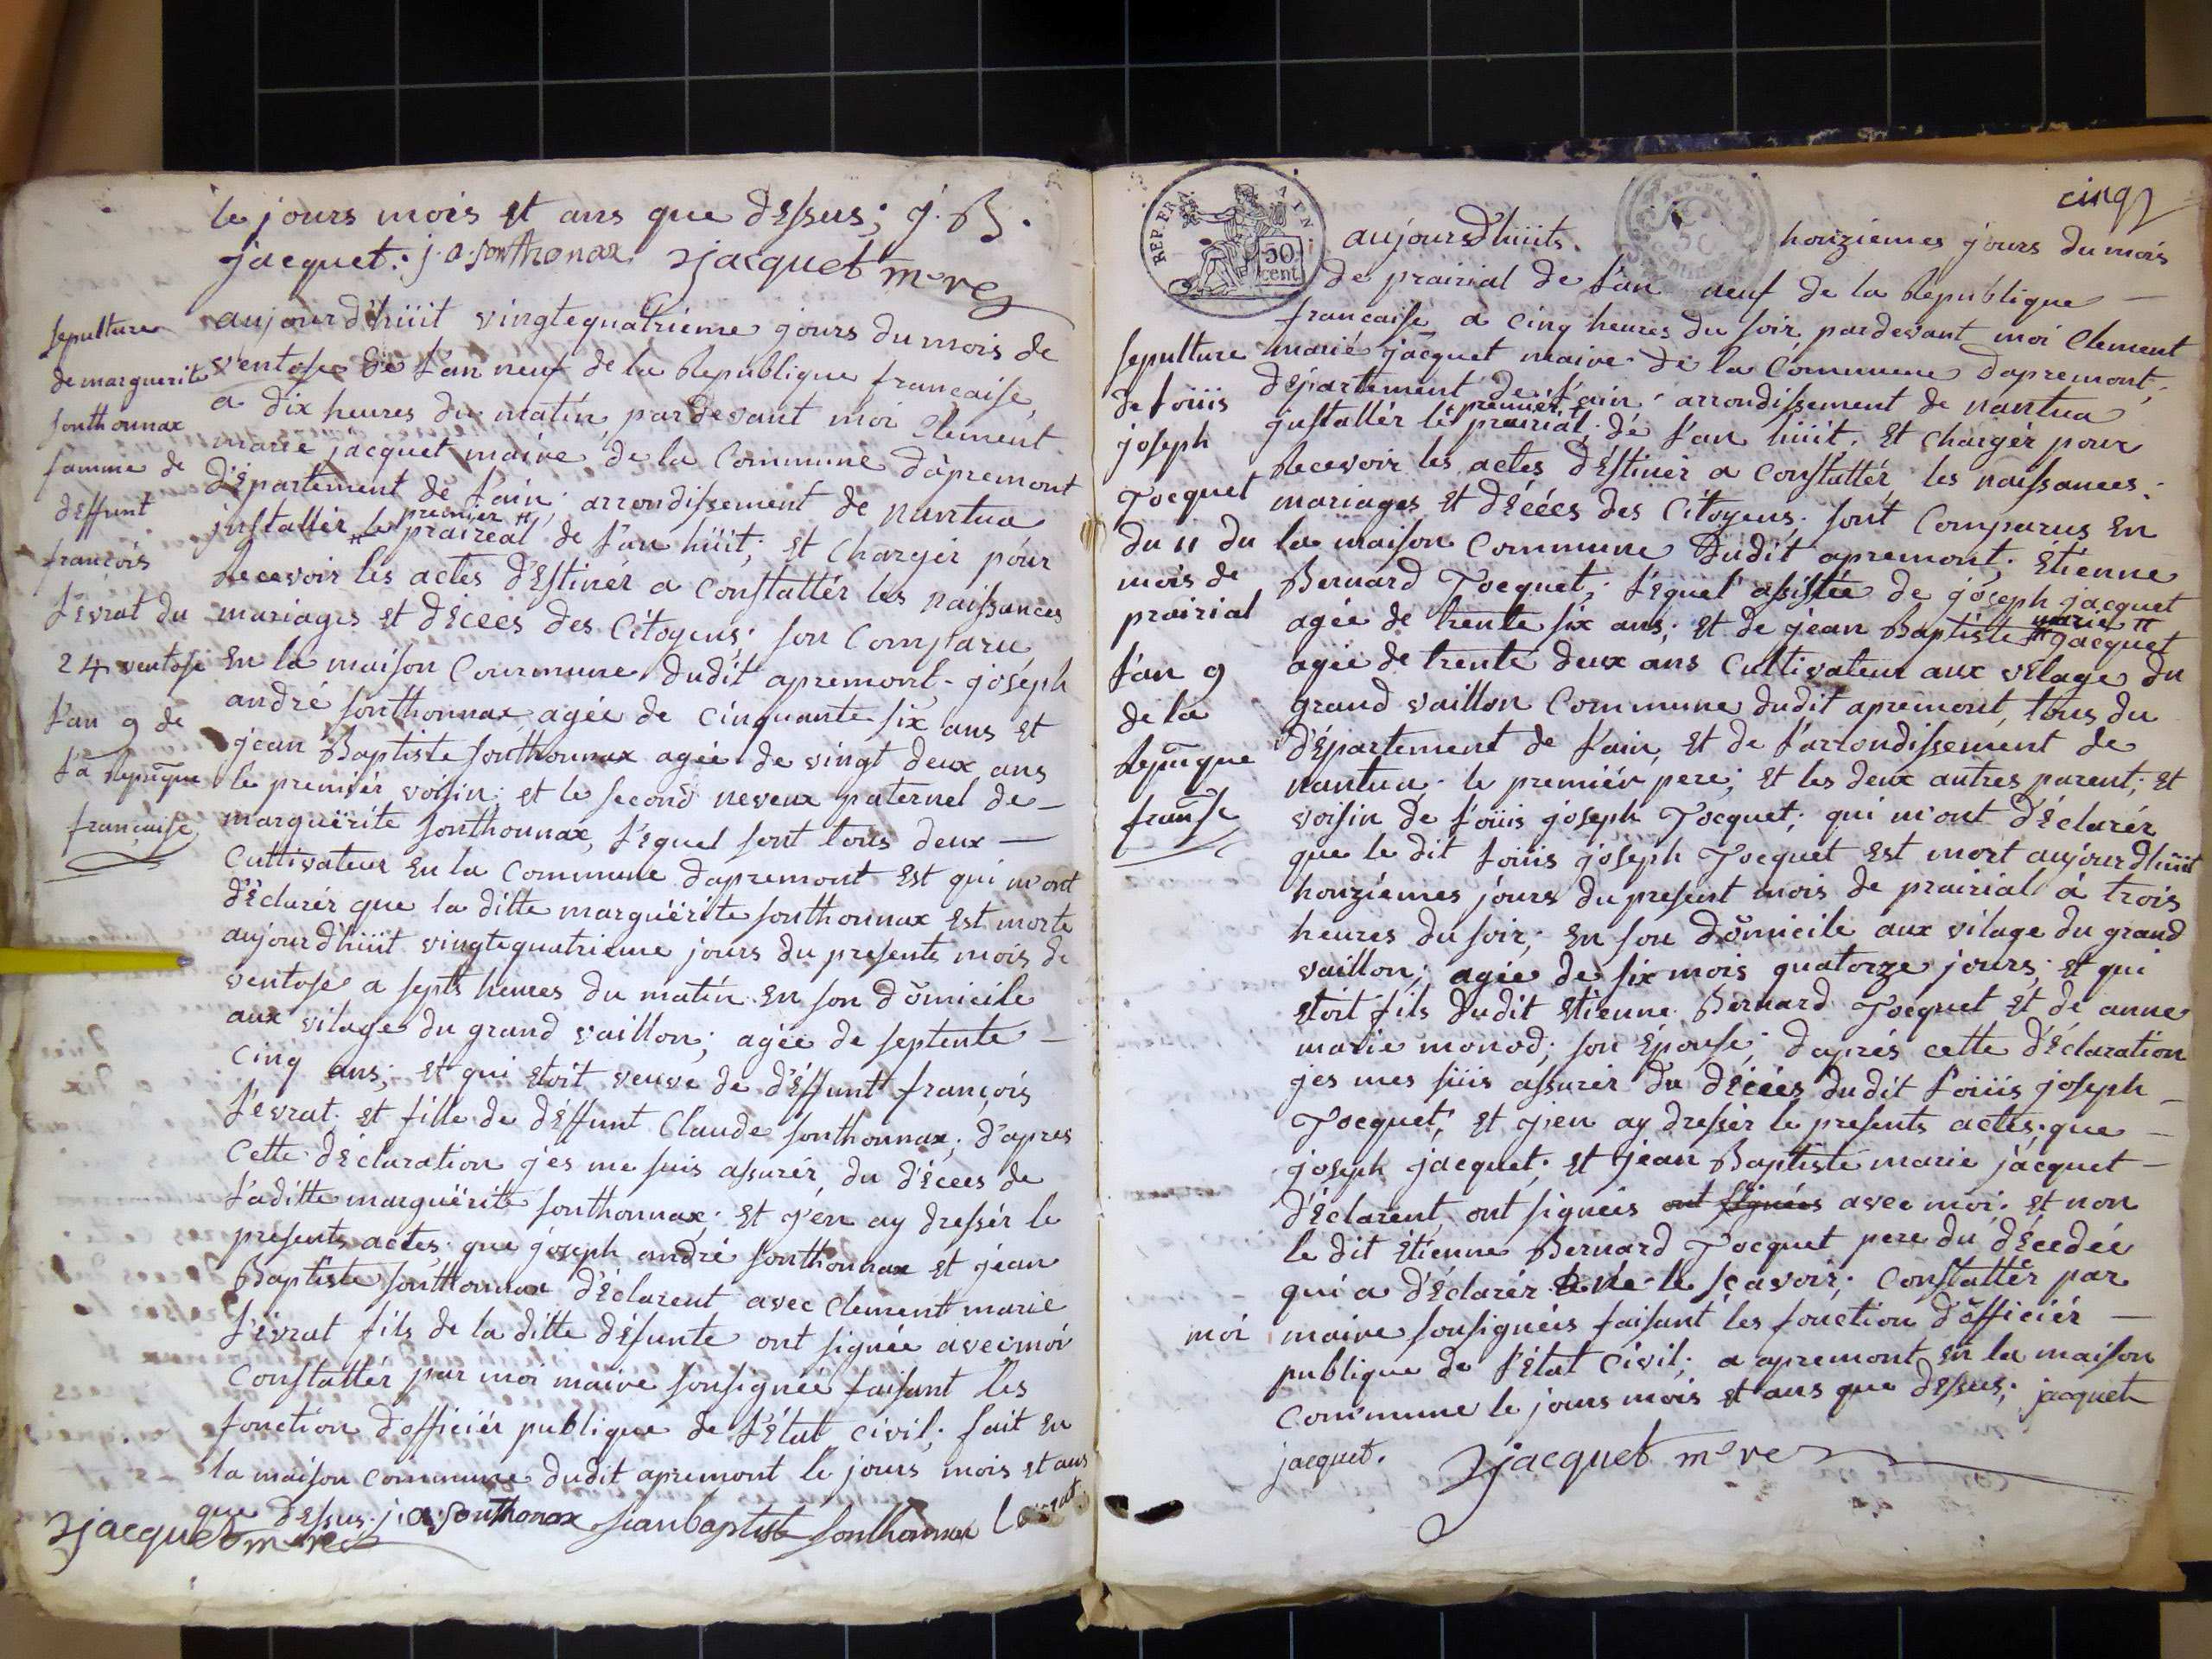 le jours mois et ans que dessus; j. B.
jacquet. j. a. sonthonax jacquet m.re
sepulture
de marguerite
sonthonnax
famme de
deffunt
francois
levrat du
24 ventose
l'an 9 de
la Repuque
francaise
aujourd'hüit vingtequatriéme jours du mois de
ventose de l'an neuf de la Republique francaise,
a dix heures du matin, pardevant moi Clement
marie jacquet maire de la Commune d'apremont
département de l'ain; arrondissement de nantua
premier
jnstallér le prairéal de l'an hüit; et chargér pour
Recevoir les actes déstinér a constattér les naissances
mariages et décées des Citoyens; son Comparu
En la maison Commune dudit apremont - joseph
andré sonthonnax, agée de cinquante six ans et
jean Baptiste sonthonnax agée de vingt deux ans
le premiér voisin; et le second neveux paternel de
marguërite sonthonnax, léquel sont tous deux
Cultivateur En la Commune dapremont Est qui m'ont
déclarér que la ditte marguërite sonthonnax est morte
aujourd'hüit vingtequatrieme jours du presente mois de
ventose a septs heures du matin En son dõmicile
aux vilage du grand vaillon; agée de septente
cinq ans; et qui étoit veuve de déffunt françois
levrat. et fille de déffunt Claude sonthonnax; d'apres
Cette déclaration jes me suis assurér, du décees de
laditte marguërite sonthonnax; et j'en ay dressér le
presents actes; que joseph andré sonthonnax et jean
Baptiste sonthonnax déclarent avec clement marie
lévrat fils de la ditte défunte ont signée avec moi
Constattér par moi maire sousignée faisant les
fonction dofficiér publique de létat civil; fait En
la maison commune dudit apremont le jours mois et ans
que dessus. j. a. sonthonax jean baptist sonthonnax
jacquet m.re
cinq
REP. FRA.
50
cent.
aujoursdhüits. honziemes jours du mois
de prairial de l'an neuf de la Republique
francaise, a cinq heures du soir, pardevant moi Clement
marie jacquet maire de la Commune dapremont;
département de l'ain, arrondissement de nantua
premier
jnstallér le prairial; de l'an hüit. et chargér pour
Recevoir les actes déstinér a constattér les naissances
mariages et décées des Citoyens. sont Comparus En
la maison Commune dudit apremont; Etienne
Bernard Tocquet; léquel assistée de joseph jacquet
marie
agée de trente six ans; et de jean Baptiste jacquet
agée de trente deux ans Cultivateur aux vilage du
grand vaillon Commune dudit apremont, tous du
département de l'ain, et de l'arrondissement de
nantua. le premiér pere; et les deux autres parent; et
voisin de loüis joseph Tocquet; qui m'ont déclarér
que le dit loüis joseph Tocquet est mort aujourdhüit
honziémes jours du present mois de prairial à trois
heures du soir; En son dõmicile aux vilage du grand
vaillon; agée de six mois quatorze jours; et qui
etoit fils dudit etienne Bernard Tocquet et de anne
marie monod; son épouse; daprés cette déclaration
jes mes suis assurér du décées dudit loüis joseph
Tocquet; et j'en ay dressér le presents actes; que
joseph jacquet; et jean Baptiste marie jacquet
déclarent, ont signeés ont signées avec moi; et non
le dit Etienne Bernard Tocquet pere du décedée
qui a déclarér ne le sçavoir; Constattér par
moi maire sousignéés faisant les fonction dofficiér
publique de létat civil; a apremont en la maison
Commune le jours mois et ans que dessus; jacquet
jacquet. jacquet m.re
sepulture
de loüis
joseph
Tocquet
du 11 du
mois de
prairial
l'an 9
de la
Repuque
franse